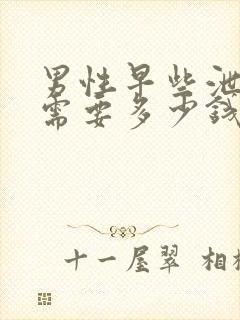 男性早些泄
需要多少钱
十一屋翠 相